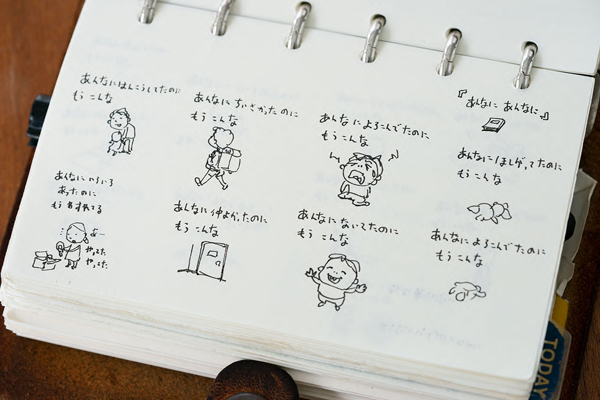 『あんなに あんなに』
あんなにほしがってたのに
もう こんな
あんなに よろこんでたのに
もう こんな
あんなに よろこんでたのに
もう こんな
あんなに ないてたのに
もう こんな
あんなに ちいさかったのに
もう こんな
あんなに仲よかったのに
もう こんな
あんなに
してたのに
もう こんな
あんなに
あったのに
もう
やった
やった
TODAY